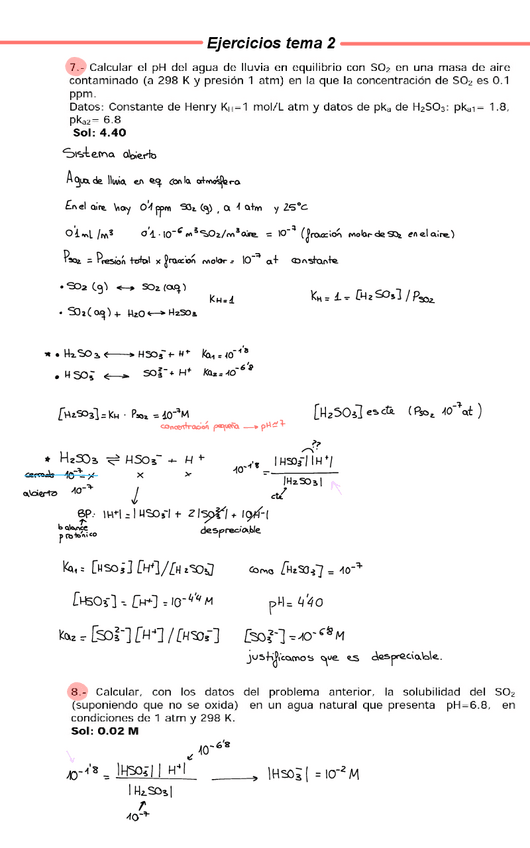 Ejercicios tema 2
7.- Calcular el pH del agua de lluvia en equilibrio con SO₂ en una masa de aire
contaminado (a 298 K y presión 1 atm) en la que la concentración de SO₂ es 0.1
ppm.
Datos: Constante de Henry K_H=1 mol/L atm y datos de pkₐ de H₂SO₃: pkₐ₁= 1.8,
pkₐ₂= 6.8
Sol: 4.40
Sistema abierto
Agua de lluvia en eq con la atmósfera
En el aire hay 0'1 ppm SO₂ (g), a 1 atm y 25°C
0'1 mL/m³ 0'1·10⁻⁶ m³ SO₂/m³ aire = 10⁻⁷ (fracción molar de SO₂ en el aire)
P_SO₂ = Presión total x fracción molar = 10⁻⁷ at constante
• SO₂ (g) ⟷ SO₂ (aq)
K_H=1 K_H = 1 = [H₂SO₃] / P_SO₂
• SO₂(aq) + H₂O ⟷ H₂SO₃
* • H₂SO₃ ⟷ HSO₃⁻ + H⁺ Ka₁ = 10⁻¹'⁸
• HSO₃⁻ ⟷ SO₃²⁻ + H⁺ Ka₂ = 10⁻⁶'⁸
[H₂SO₃] = K_H · P_SO₂ = 10⁻⁷M [H₂SO₃] es cte (P_SO₂ 10⁻⁷ at)
concentración pequeña → pH≠7
??
* H₂SO₃ ⇌ HSO₃⁻ + H⁺ 10⁻¹'⁸ = |HSO₃⁻| |H⁺| / |H₂SO₃|
cerrado 10⁻⁷ - x x x
cte
abierto 10⁻⁷
BP: |H⁺| = |HSO₃⁻| + 2|SO₃²⁻| + |OH⁻|
balance
protónico despreciable
Ka₁ = [HSO₃⁻] [H⁺] / [H₂SO₃] como [H₂SO₃] = 10⁻⁷
[HSO₃⁻] = [H⁺] = 10⁻⁴'⁴ M pH = 4'40
Ka₂ = [SO₃²⁻] [H⁺] / [HSO₃⁻] [SO₃²⁻] = 10⁻⁶'⁸ M
justificamos que es despreciable.
8.- Calcular, con los datos del problema anterior, la solubilidad del SO₂
(suponiendo que no se oxida) en un agua natural que presenta pH=6.8, en
condiciones de 1 atm y 298 K.
Sol: 0.02 M
10⁻⁶'⁸
10⁻¹'⁸ = |HSO₃⁻| |H⁺| / |H₂SO₃| → |HSO₃⁻| = 10⁻² M
10⁻⁷